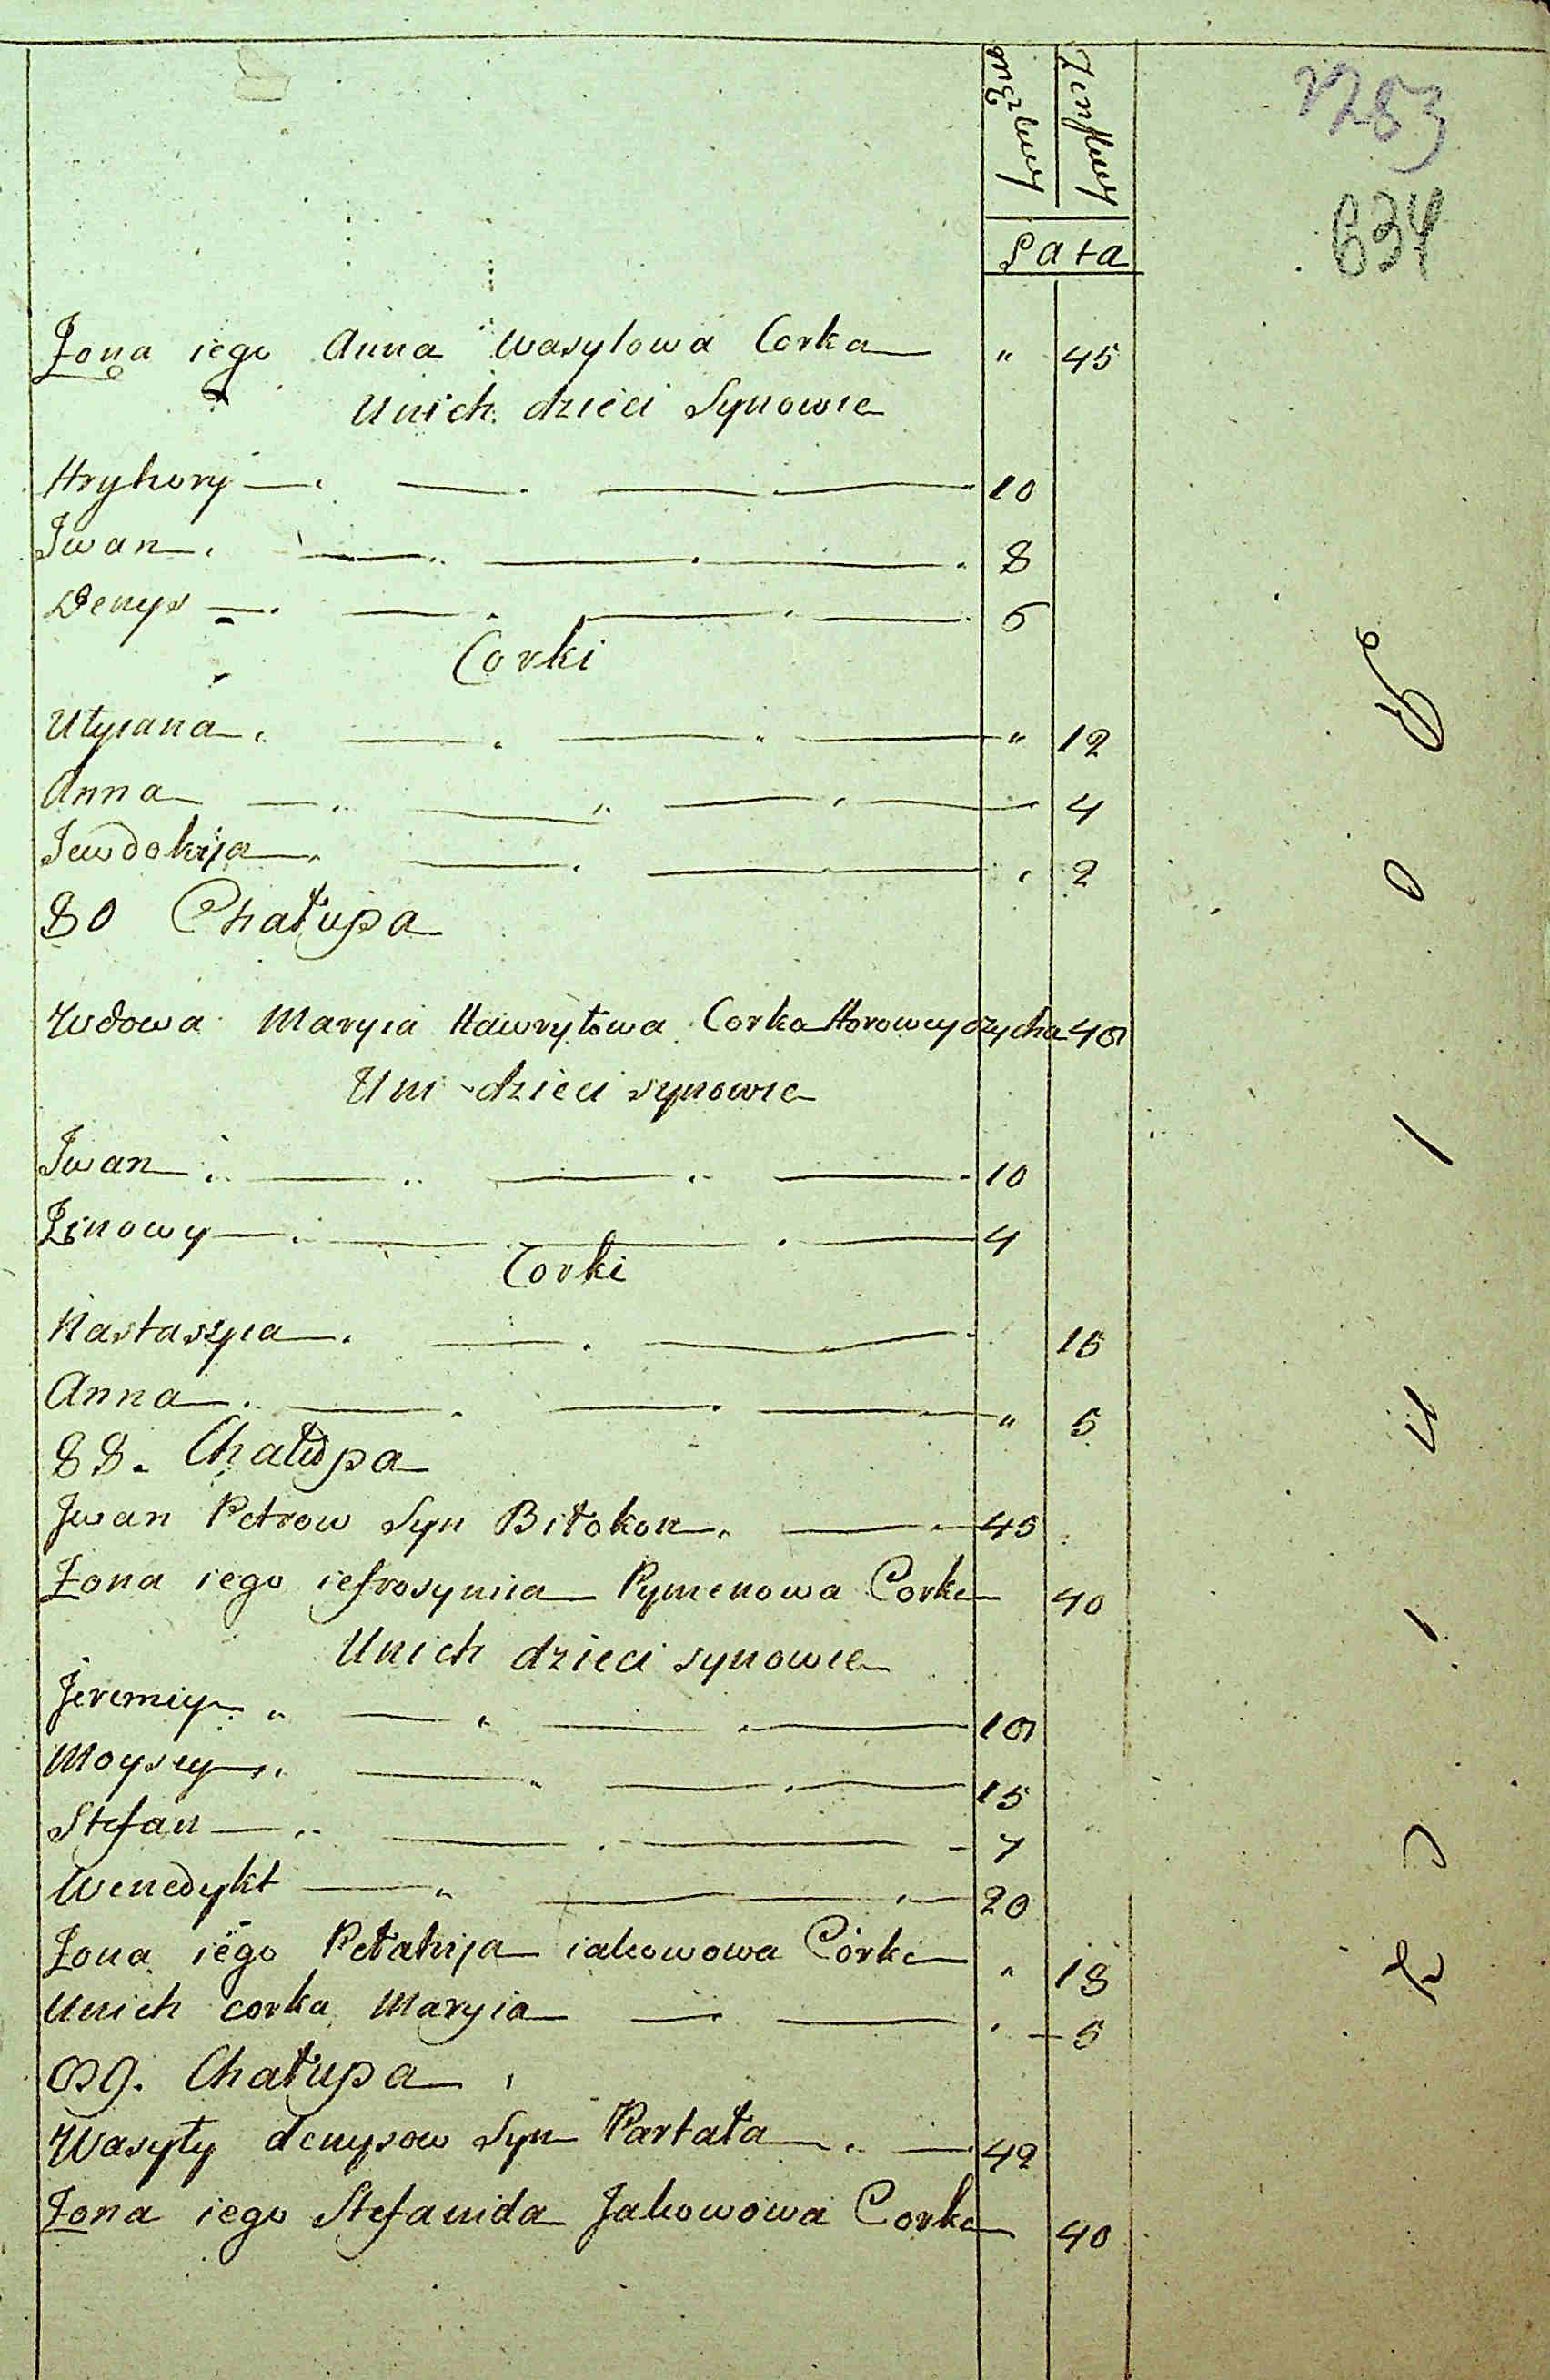 męzkiey Żenskiey
1283
634
Lata
Żona iego Anna Wasylowa Corka " 45
Unich dzieci Synowie
Hryhory 10
Jwan 8
Denys 6
Corki
Utyiana " 12
Anna 4
Jewdokija 2
80 Chałupa
Wdowa Maryia Hawryłowa Corka Horowcydzycha 40
Uni dzieci synowie
Jwan 10
Zinowy 4
Corki
Nastaszyia 15
Anna " 5
88. Chałupa
Jwan Petrow Syn Biłokon 45
Żona iego iefrosynia Pymenowa Corka 40
Unich dzieci synowie
Jeremiy 10
Moysey 15
Stefan 7
Wenedykt 20
Żona iego Pełahija iakowowa Córka " 18
Unich corka Maryia 5
89. Chałupa
Wasyły denysow Syn Partała 42
Żona iego Stefanida Jakowowa Corka 40